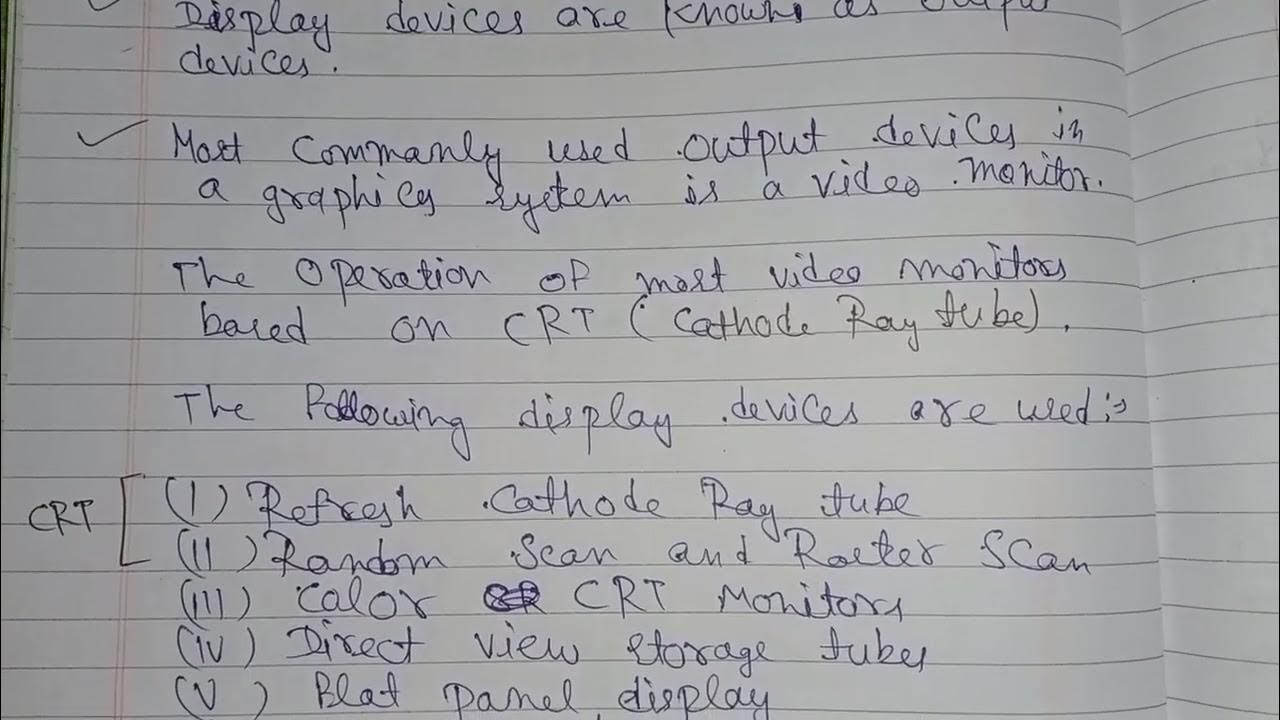 Display devices are known as output
devices.
Most commanly used output devices in
a graphics system is a video monitor.
The Operation of most video monitors
based on CRT (Cathode Ray tube).
The following display devices are used:-
CRT
(I) Refresh Cathode Ray tube
(II) Random Scan and Raster Scan
(III) Color CRT Monitors
(IV) Direct view storage tubes
(V) Flat panel display